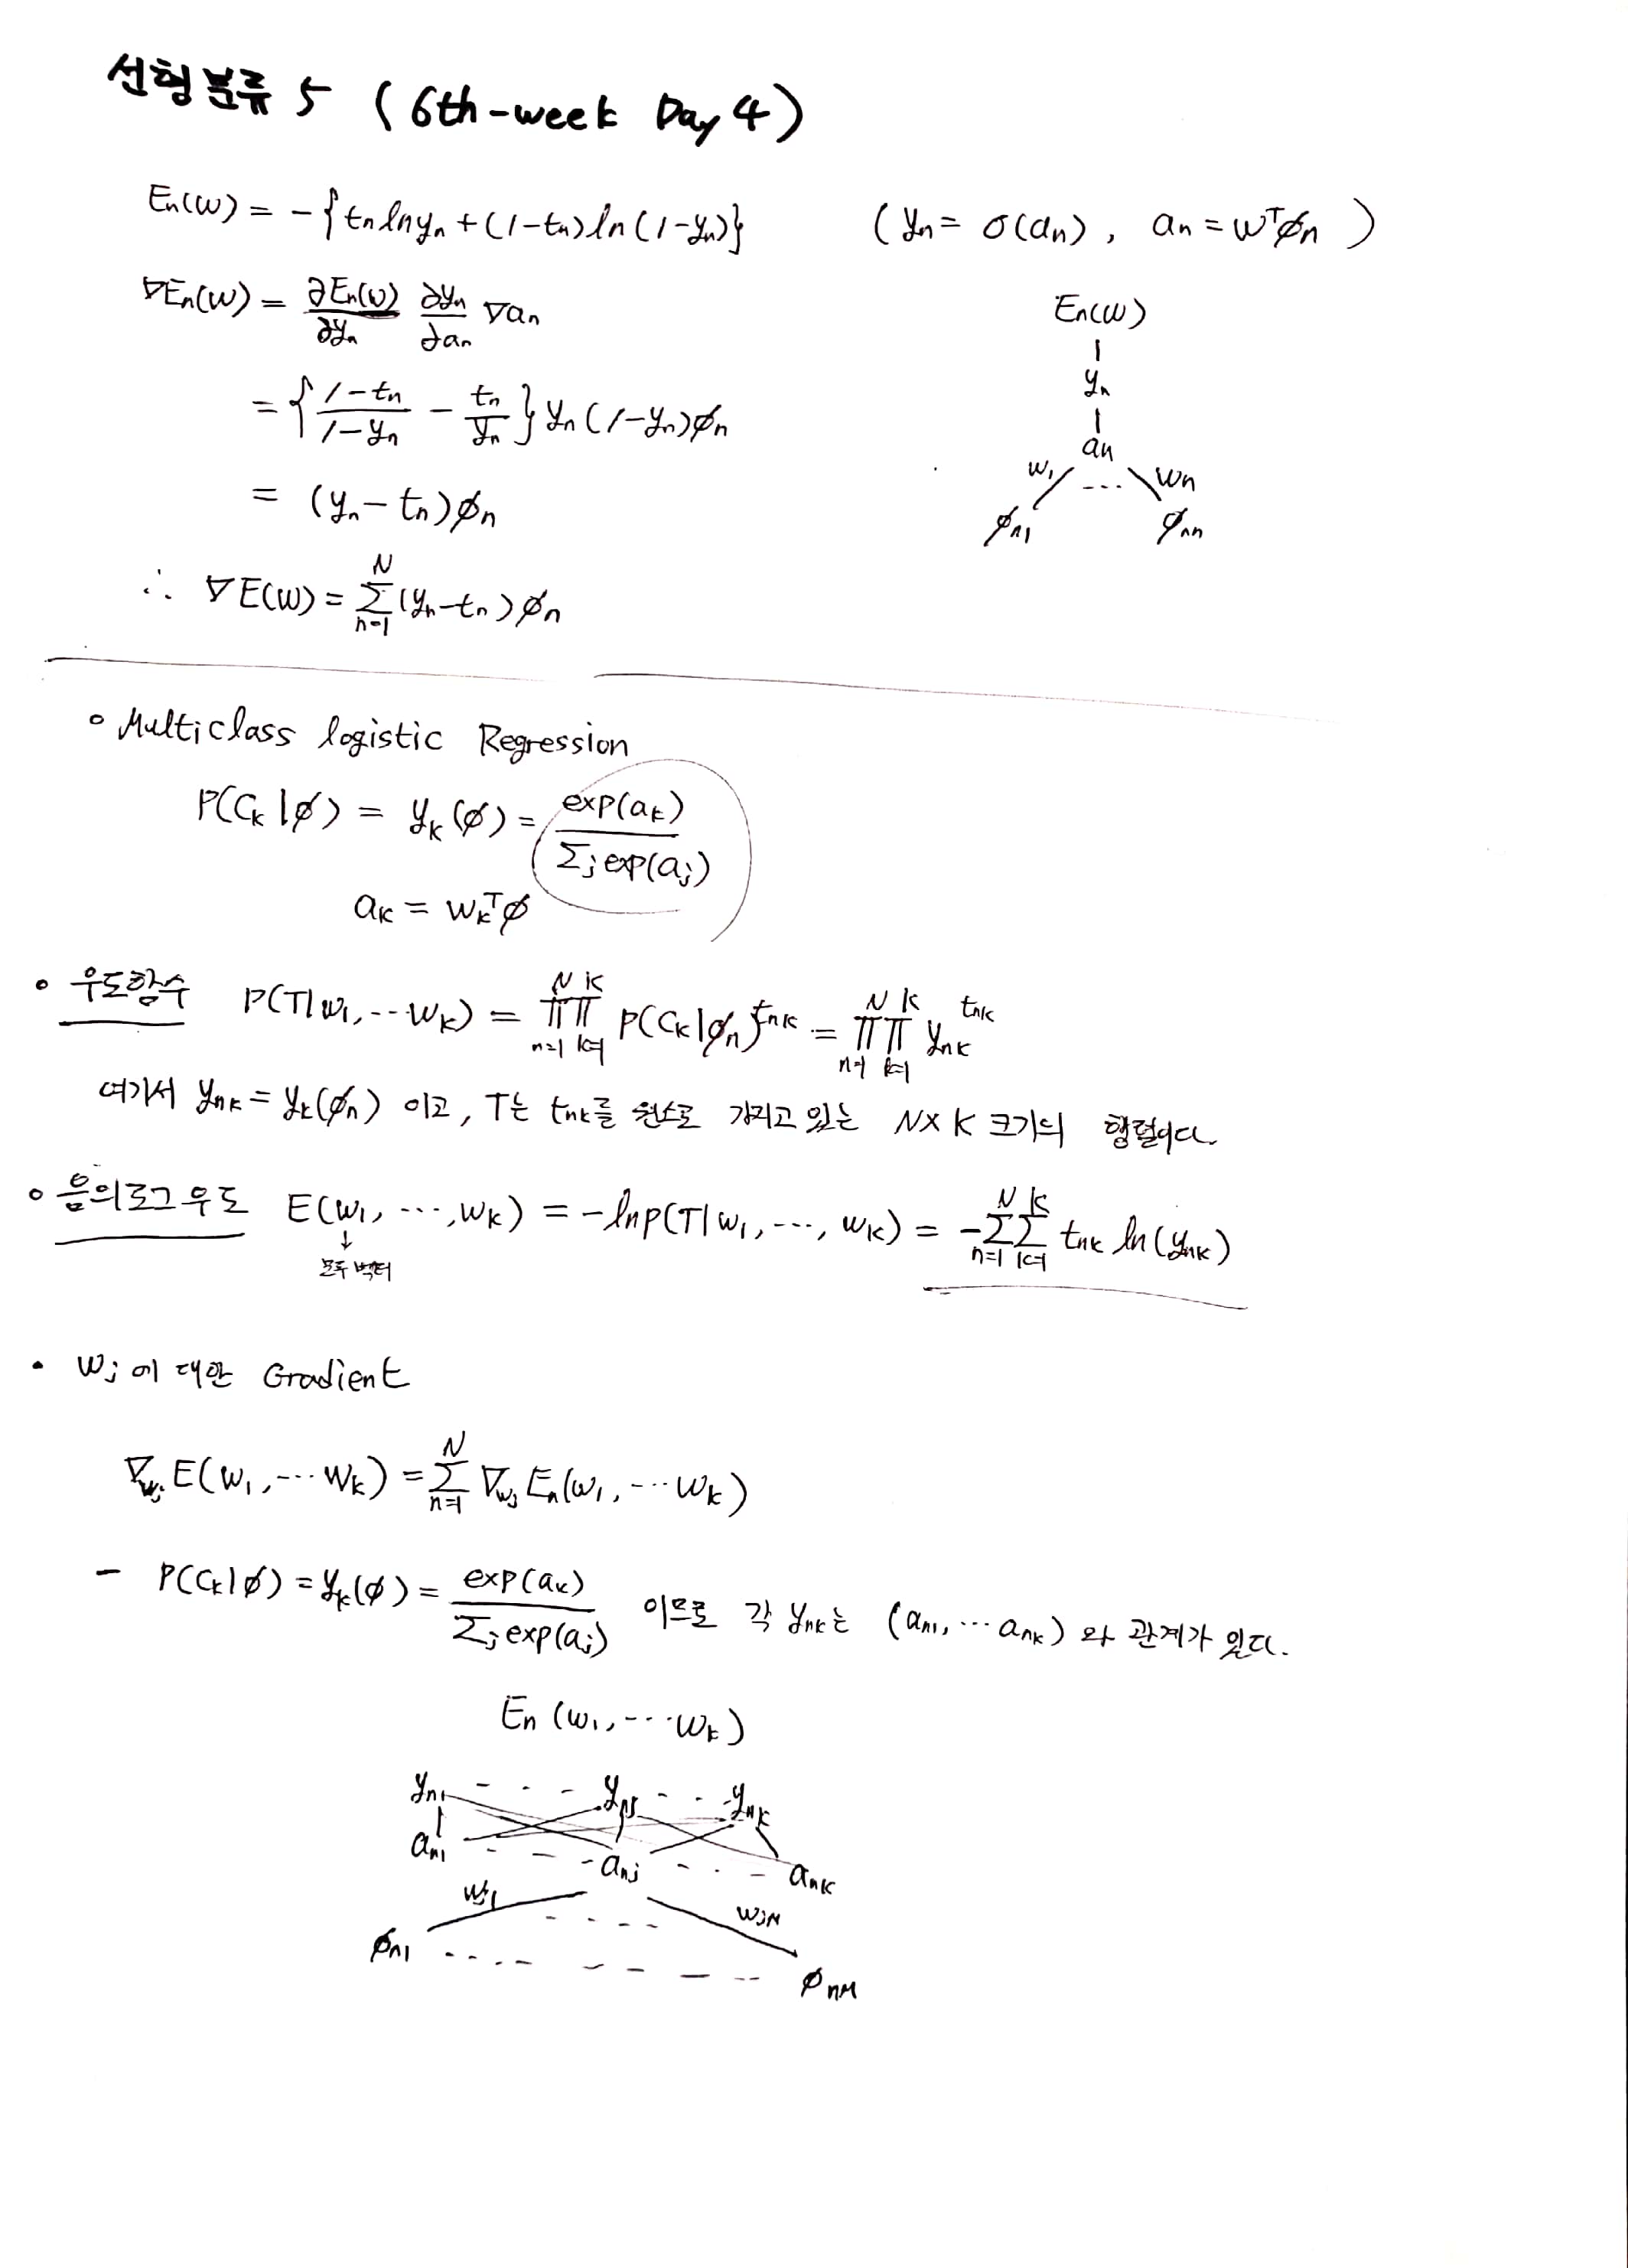 선형분류 5 (6th-week Day 4)
En(w) = -{tn ln yn + (1-tn) ln (1-yn)} (yn = σ(an), an = wᵀφn)
∇En(w) = ∂En(w)/∂yn ∂yn/∂an ∇an
= {(1-tn)/(1-yn) - tn/yn} yn(1-yn)φn
= (yn - tn)φn
∴ ∇E(w) = Σ_{n=1}^{N} (yn-tn)φn
En(w)
yn
an
w1 --- wn
φn1 φnn
∘ Multiclass logistic Regression
P(Ck|φ) = yk(φ) = exp(ak) / Σj exp(aj)
ak = wkᵀφ
∘ 우도함수 P(T|w1, --- wk) = Π_{n=1}^{N} Π_{k=1}^{K} P(Ck|φn)^{tnk} = Π_{n=1}^{N} Π_{k=1}^{K} ynk^{tnk}
여기서 ynk = yk(φn) 이고, T는 tnk를 원소로 가지고 있는 N×K 크기의 행렬이다.
∘ 음의로그우도 E(w1, ---, wk) = -lnp(T|w1, ---, wk) = -Σ_{n=1}^{N} Σ_{k=1}^{K} tnk ln(ynk)
↓
모두 벡터
• wj에 대한 Gradient
∇wj E(w1, --- wk) = Σ_{n=1}^{N} ∇wj En(w1, --- wk)
- P(Ck|φ) = yk(φ) = exp(ak) / Σj exp(aj) 이므로 각 ynk는 (an1, --- ank)와 관계가 있다.
En (w1, --- wk)
yn1 - - - ynj - - - ynk
an1 - - - anj - - - ank
wj1 - - - - wjM
φn1 - - - - φnM